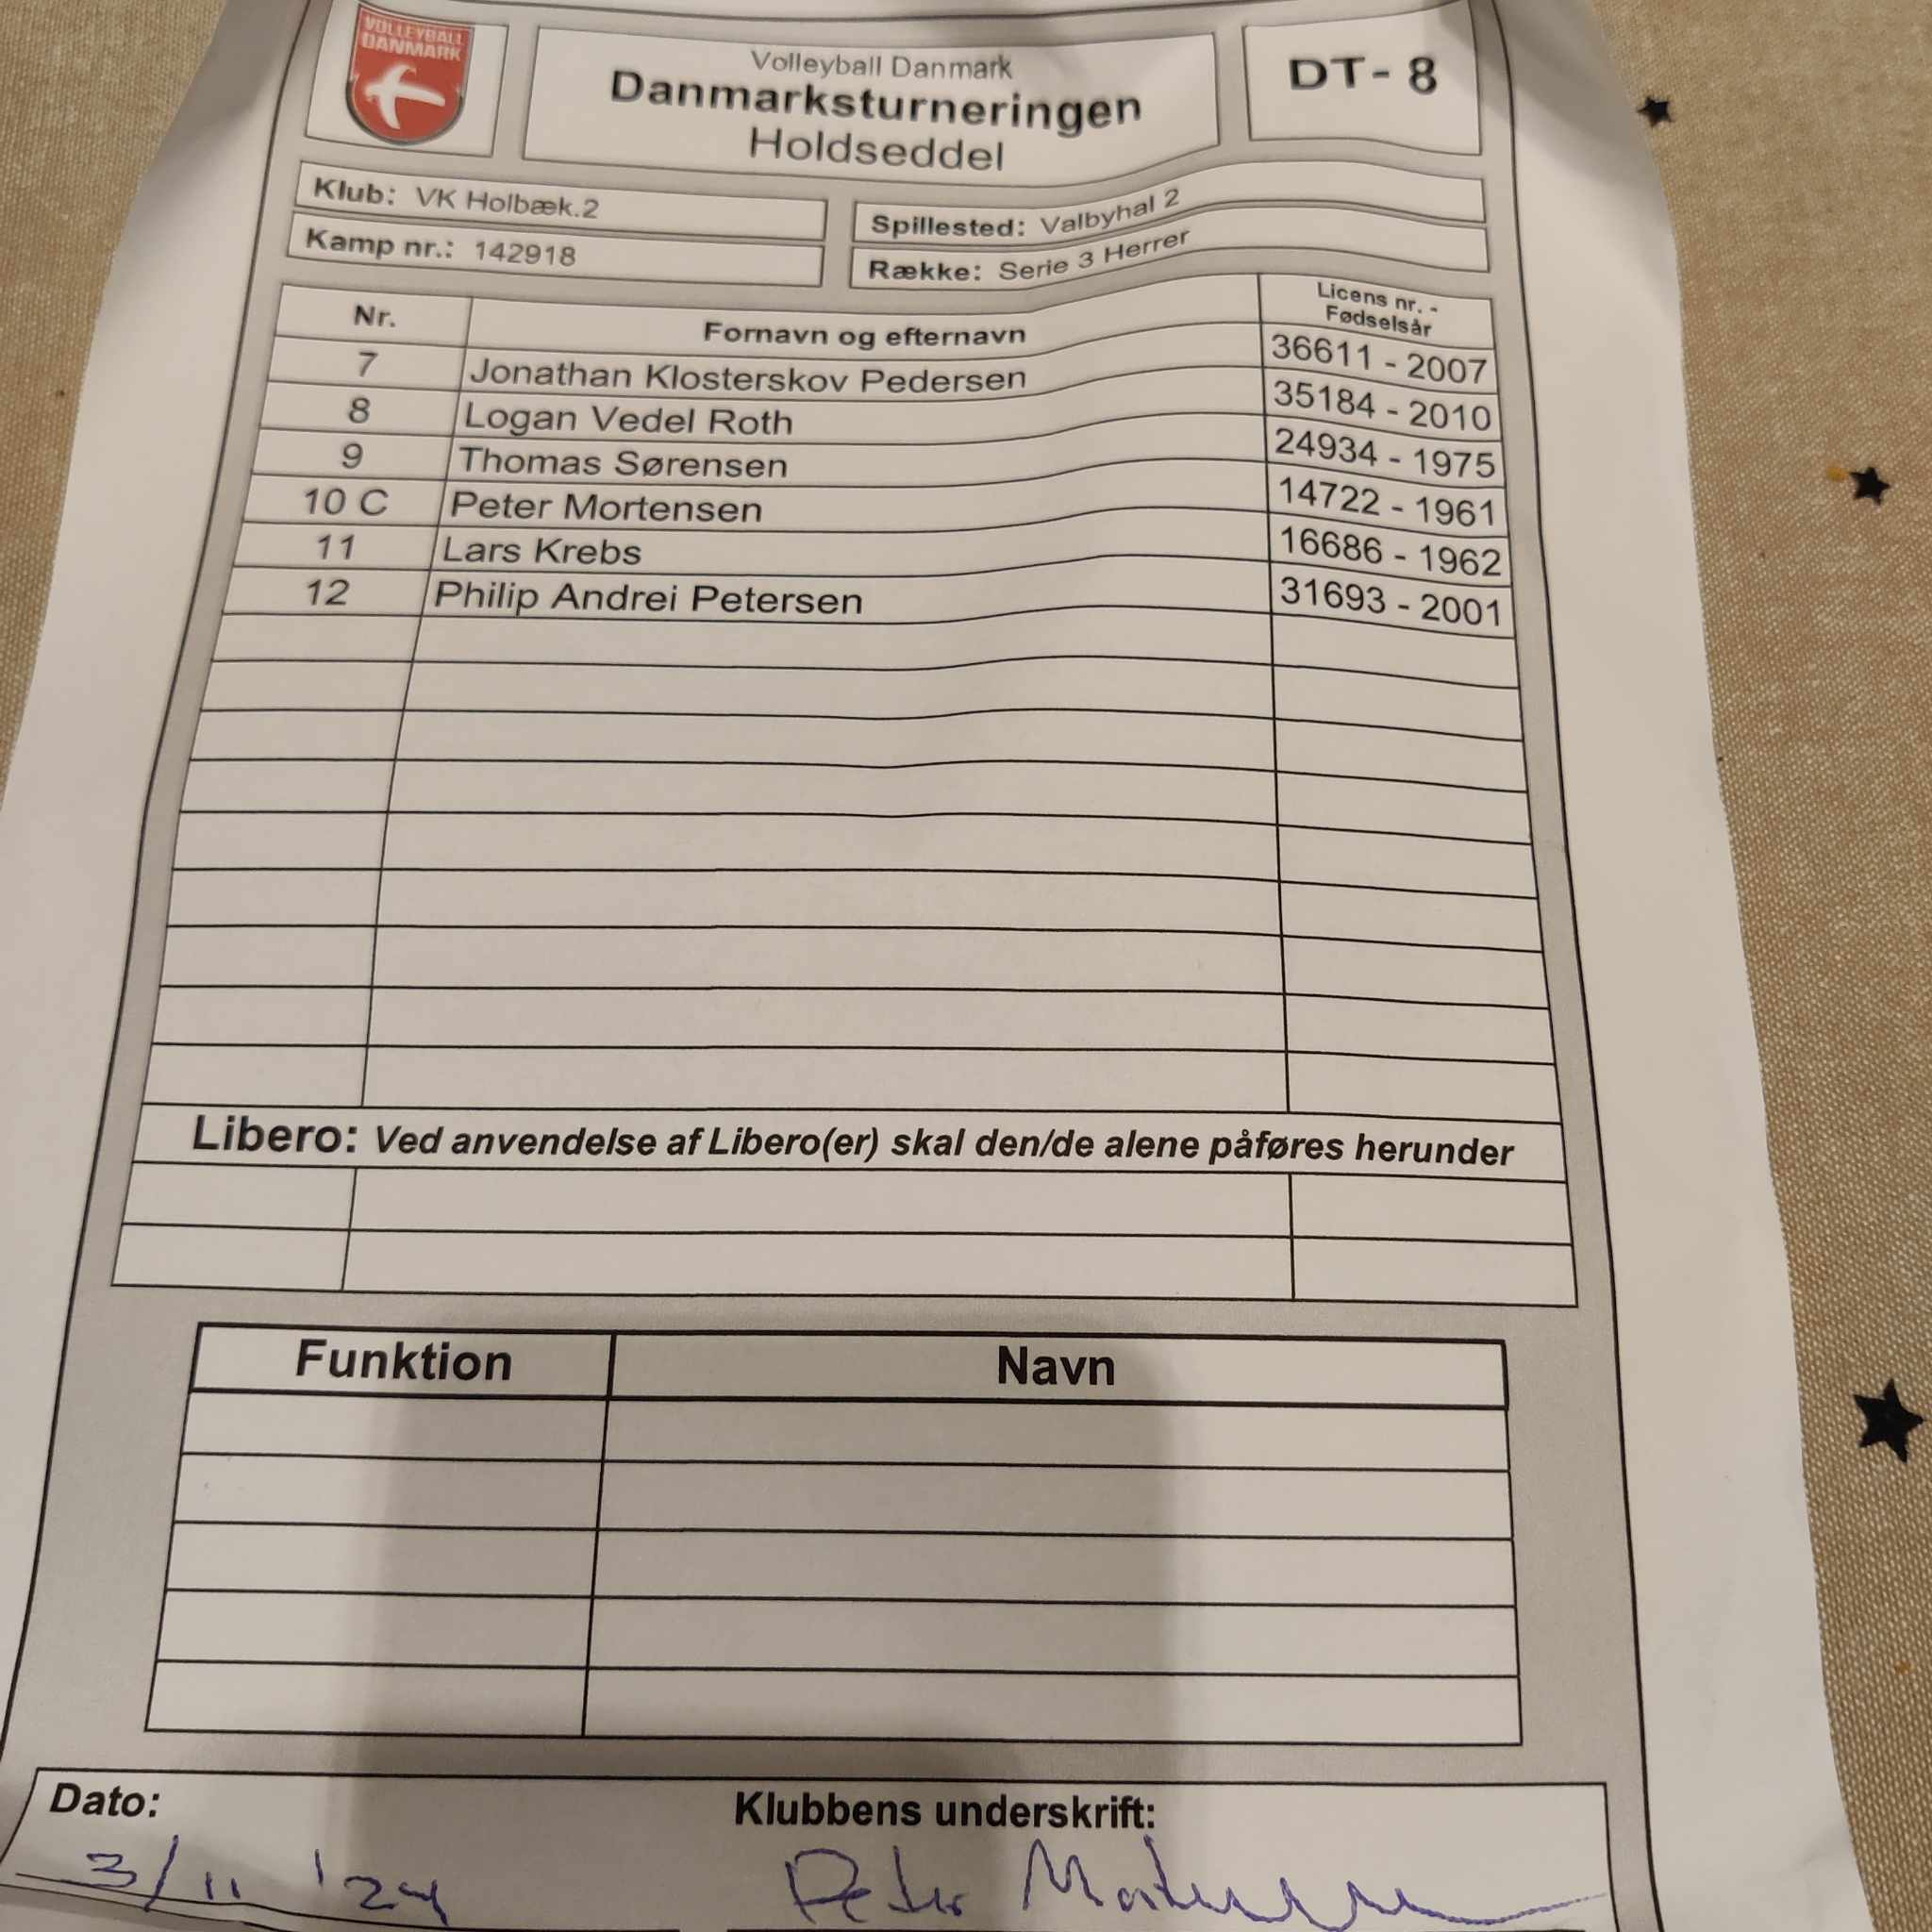 VOLLEYBALL
DANMARK
Volleyball Danmark
Danmarksturneringen
Holdseddel
DT- 8
Klub: VK Holbæk.2
Spillested: Valbyhal 2
Kamp nr.: 142918
Række: Serie 3 Herrer
Nr. Fornavn og efternavn Licens nr. -
Fødselsår
7 Jonathan Klosterskov Pedersen 36611 - 2007
8 Logan Vedel Roth 35184 - 2010
9 Thomas Sørensen 24934 - 1975
10 C Peter Mortensen 14722 - 1961
11 Lars Krebs 16686 - 1962
12 Philip Andrei Petersen 31693 - 2001
Libero: Ved anvendelse af Libero(er) skal den/de alene påføres herunder
Funktion Navn
Dato: Klubbens underskrift:
3/11 '24 Peter Mortensen